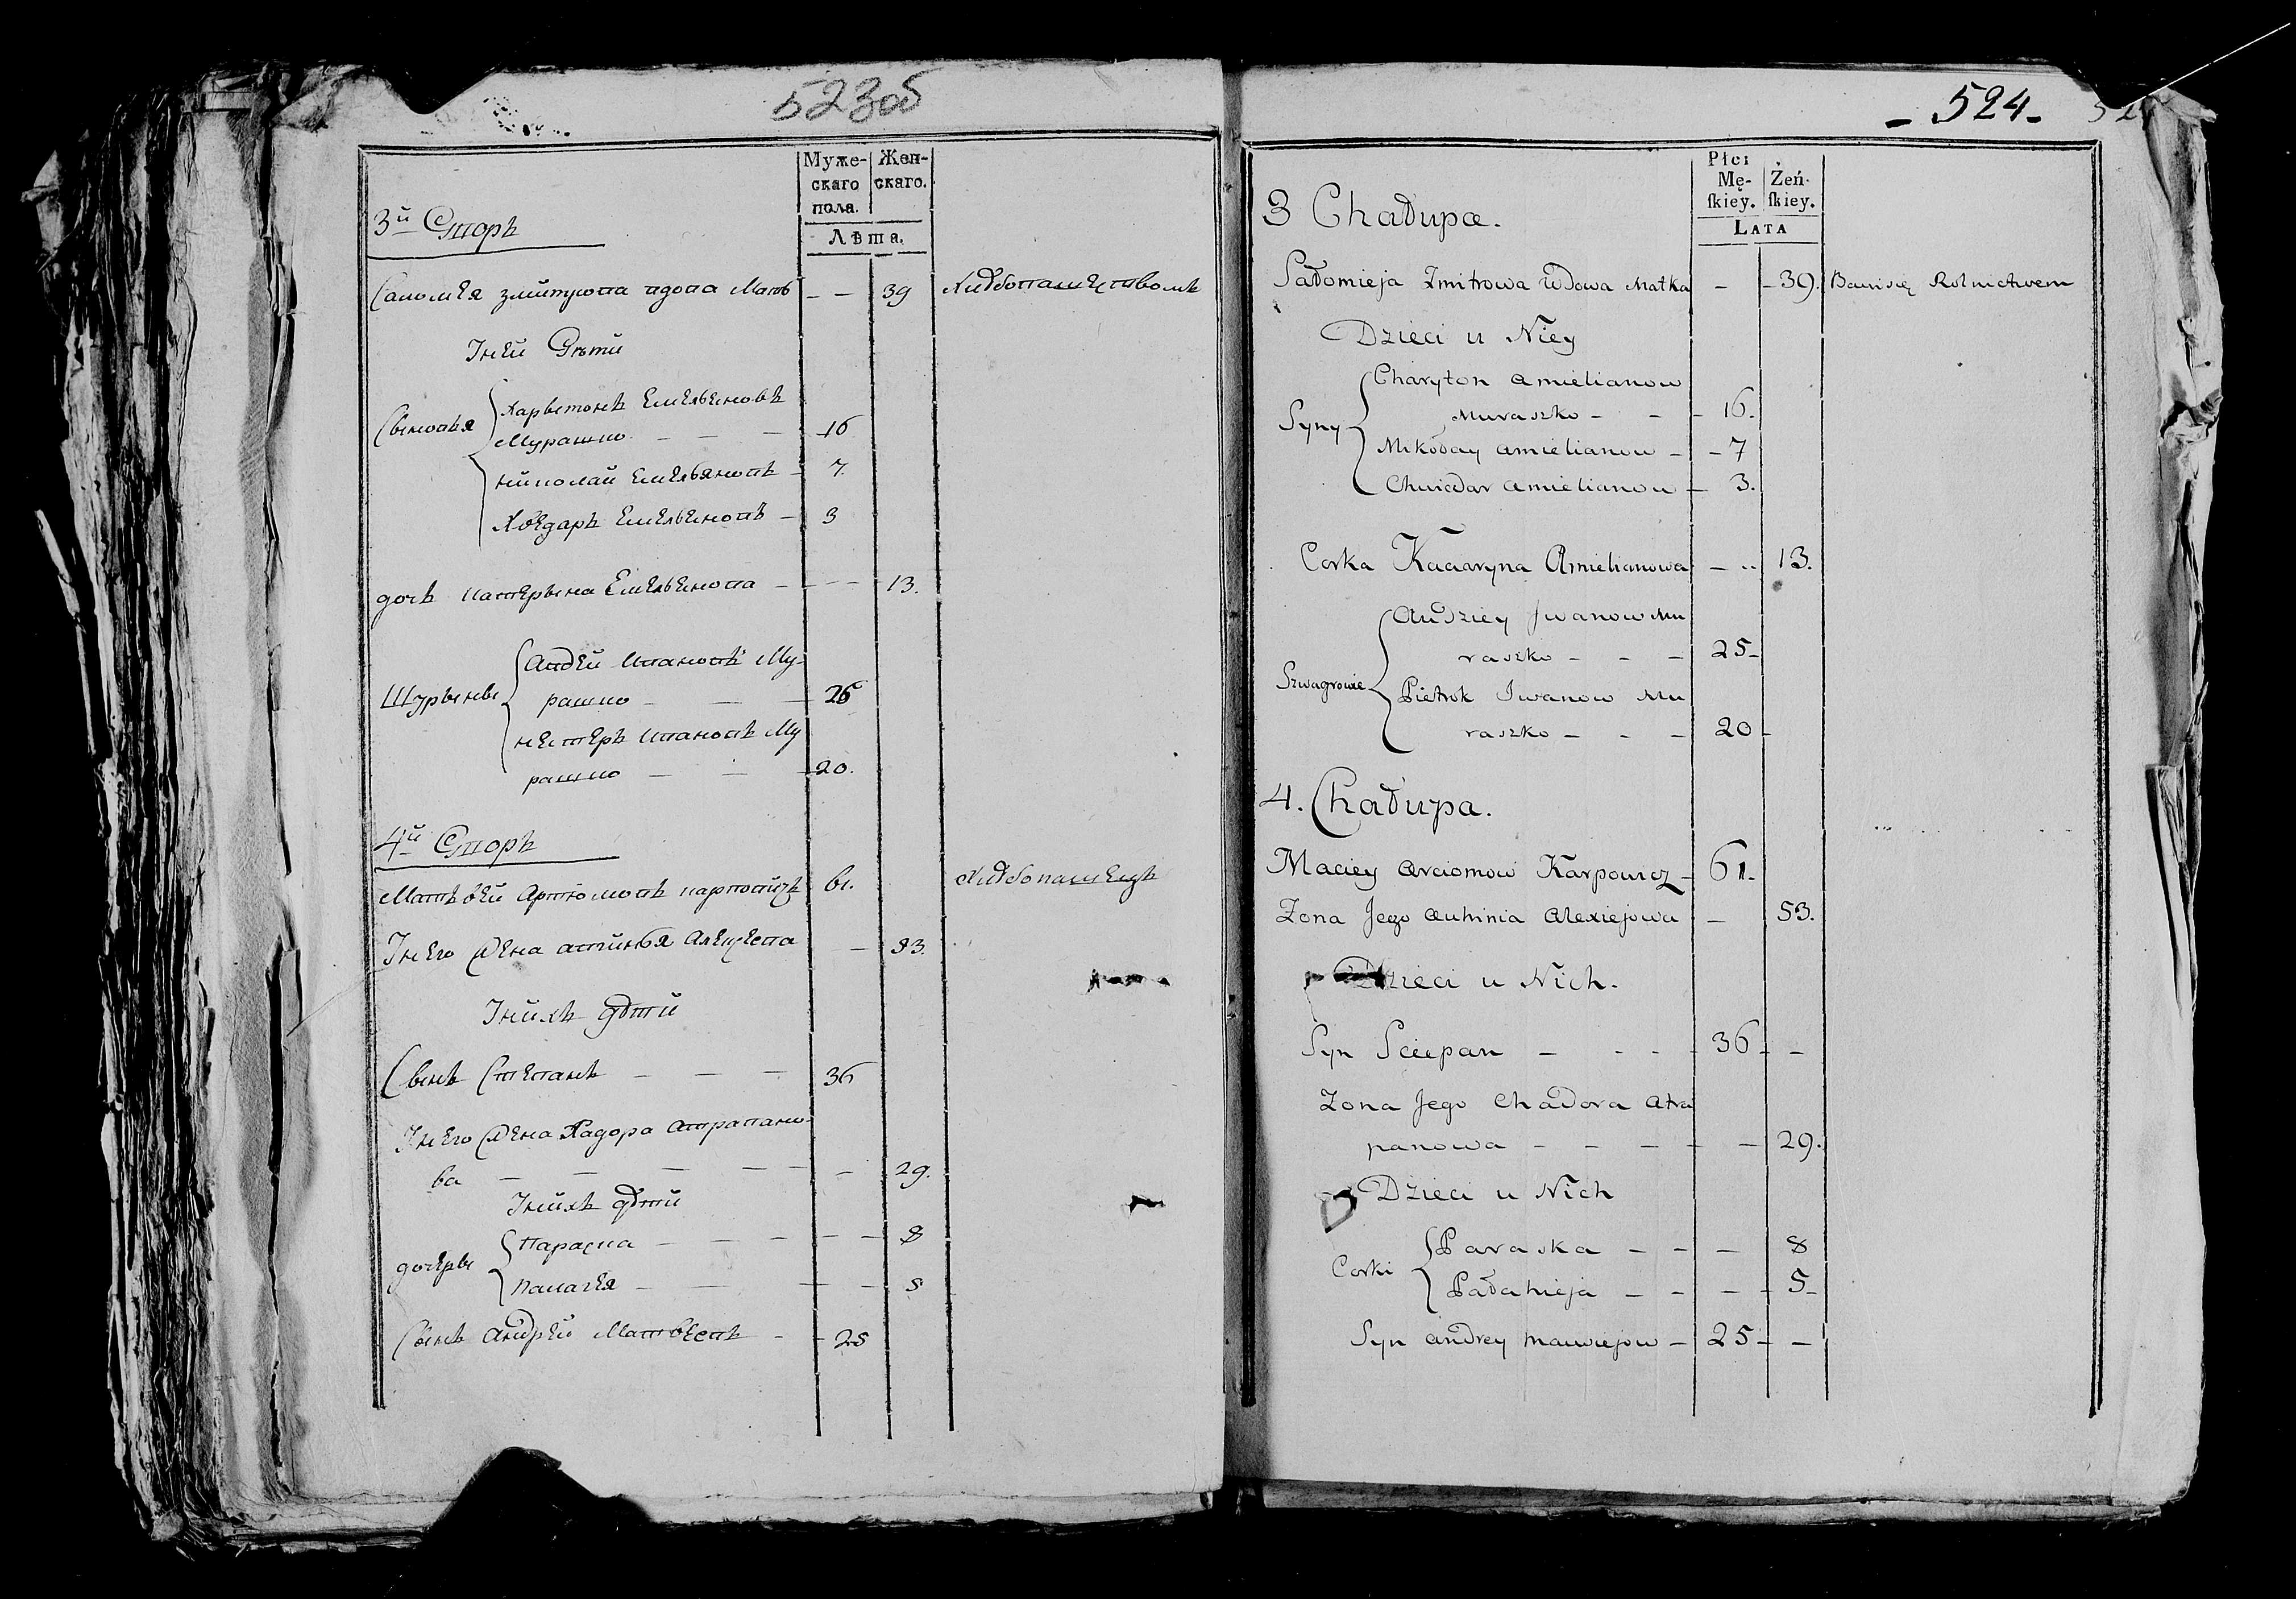 523об
Муже- Жен-
скаго скаго.
пола.
Лѣта.
3й Дворъ
Саломея Змитрова вдова Мать – – 39 Хлебопашествомъ
У ней Дѣти
Сыновья
Харытонъ Емельяновъ
Мурашко – – – 16
Николай Емельяновъ – 7.
Хведаръ Емельяновъ – 3
дочь Катерына Емельянова – – – 13.
Шурыны
Андрей Ивановъ Му-
рашко – – –
Ивановъ Му
рашко – – – 20.
4й Дворъ
Матвей Артіомовъ Карповичъ 61. Хлебопашецъ
У него жена Алексеева –
У нихъ дѣти
Сынъ Степанъ – – – 36
У него жена Хадора Атрапано-
ва – – – – – – 29.
У нихъ дѣти
дочеры
Параска – – – – – 8
Палагея – – – – 5
Сынъ Андрей Матвеевъ – – 25
- 524 -
Płci
Mę- Żeń-
ſkiey. ſkiey.
LATA
3 Chałupa.
Sałomieja Zmitrowa Wdowa Matka – – 39. Bawi się Rolnictwem
Dzieci u Niey
Syny
Charyton Amielianow
Muraszko – – – 16.
Mikołay Amielianow – – 7
Chwiedar Amielianow – 3.
Corka Kaciaryna Amielianowa – – 13.
Szwagrowie
Andziey Jwanow Mu
raszko – – – 25 –
Pietrok Jwanow Mu
raszko – – – 20 –
4. Chałupa.
Maciey Arciomow Karpowicz – 61 –
Zona Jego Auhinia Alexiejowa – 53.
Dzieci u Nich.
Syn Sciepan – – – – 36 – –
Zona Jego Chadora Atra
panowa – – – – – 29.
Dzieci u Nich
Corki
Paraska – – – 8
Pałahieja – – – – 5 –
Syn Andrey Maciejow – 25 – –